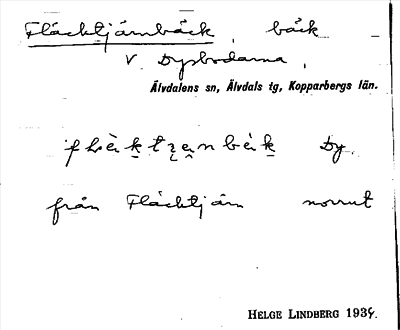 Fläcktjärnbäck, bäck
V Dysbodarna,
Älvdalens sn, Älvdals tg, Kopparbergs län.
Dy
från Fläcktjärn norrut
HELGE LINDBERG 193